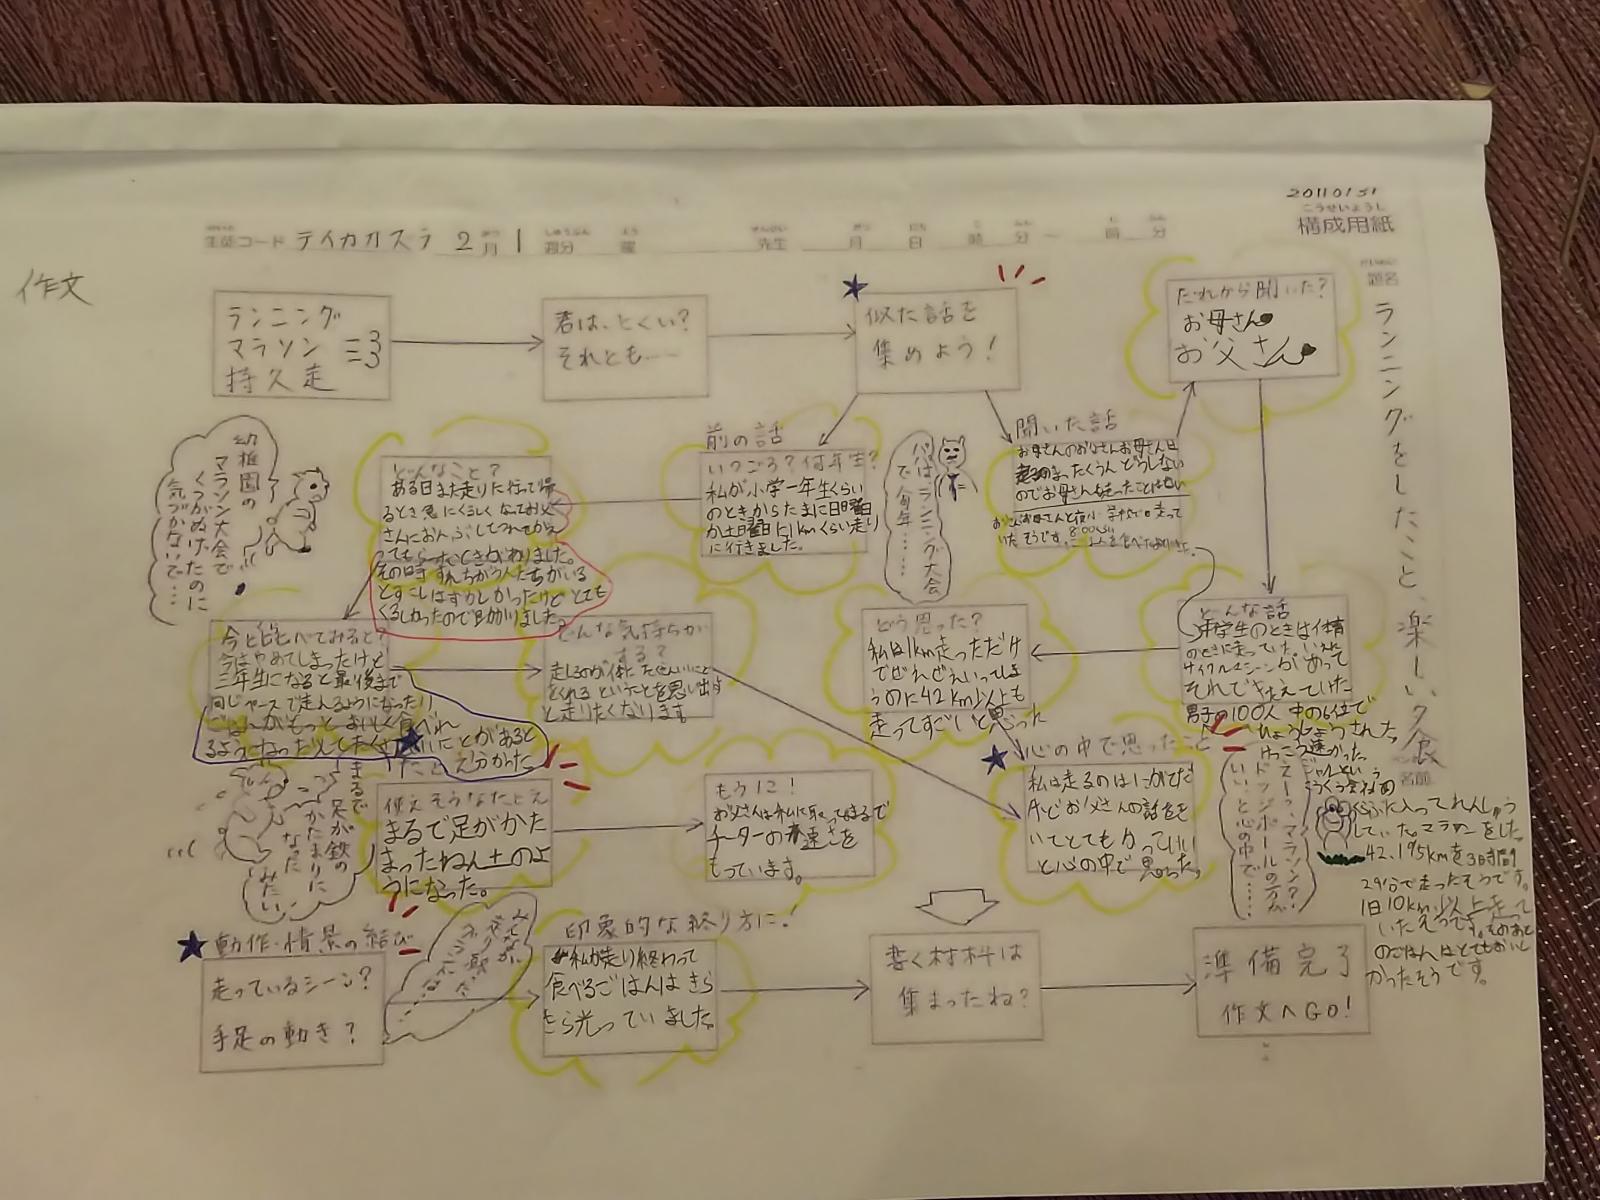 2011 01 31
こうせいようし
構成用紙
生徒コード テイカカズラ 2月 1 週分 曜 先生 月 日 時 分〜 時 分
作文
題名
ランニングをしたこと、楽しい夕食
名前
ランニング
マラソン
持久走
君は、とくい?
それとも……
似た話を
集めよう!
だれから聞いた?
お母さん
お父さん
前の話
いつごろ?何年生?
私が小学一年生くらい
のときからたまに日曜日
か土曜日に1kmくらい走り
に行きました。
パパはランニング大会
で毎年……
聞いた話
お母さんのお父さんお母さんは
まったくうんどうしない
のでお母さんも走ったことはない
幼稚園の
マラソン大会で
くつがぬけたのに
気づかないで…
どんなこと?
ある日また走りに行って帰
るとき急にくるしくなってお父
さんにおんぶしてつれてかえっ
てもらったときがありました。
その時すれちがう人たちがいる
とすこしはずかしかったけどとても
くるしかったので助かりました。
今と比べてみると?
今はやめてしまったけど
三年生になると最後まで
同じペースで走れるようになったり
ごはんがもっとおいしく食べれ
るようになった
どんな気持ちが
する?
走るのが体にたくさんいいこと
をくれるということを思い出す
と走りたくなります
どう思った?
私は1km走っただけ
でぜえぜえいってしま
うのに42km以上も
走ってすごいと思った
どんな話
学生のときは体育
のときに走っていた。
サイクルマシーンがあって
それできたえていた
男子の100人中の6位で
ひょうしょうされた
けっこう速かった
くらぶに入ってれんしゅう
していた。マラソンをした。
42.195kmを3時間
29分で走ったそうです。
1日10km以上走って
いたそうです。そのあと
のごはんはとてもおいし
かったそうです。
心の中で思ったこと
私は走るのはにがてだ
けどお父さんの話をき
いてとてもかっこいい
と心の中で思った。
えーっ、マラソン?
ドッジボールの方が
いい、と心の中で……
まるで
足が鉄の
かたまりに
なった
みたい
使えそうなたとえ
まるで足がかた
まったねん土のよ
うになった。
もう一つ!
お父さんは私に取ってはまるで
チーターの速さを
もっています。
動作・情景の結び
走っているシーン?
手足の動き?
印象的な終り方に!
私が走り終わって
食べるごはんはきら
きら光っていました。
書く材料は
集まったね?
準備完了
作文へGO!